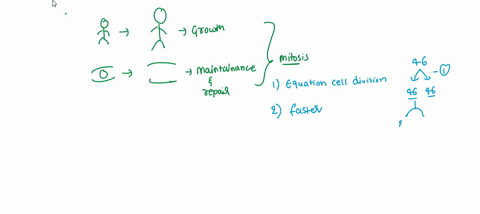 Growth
maintainance
&
repair
mitosis
1) Equation cell division
2) faster
46
①
46 46